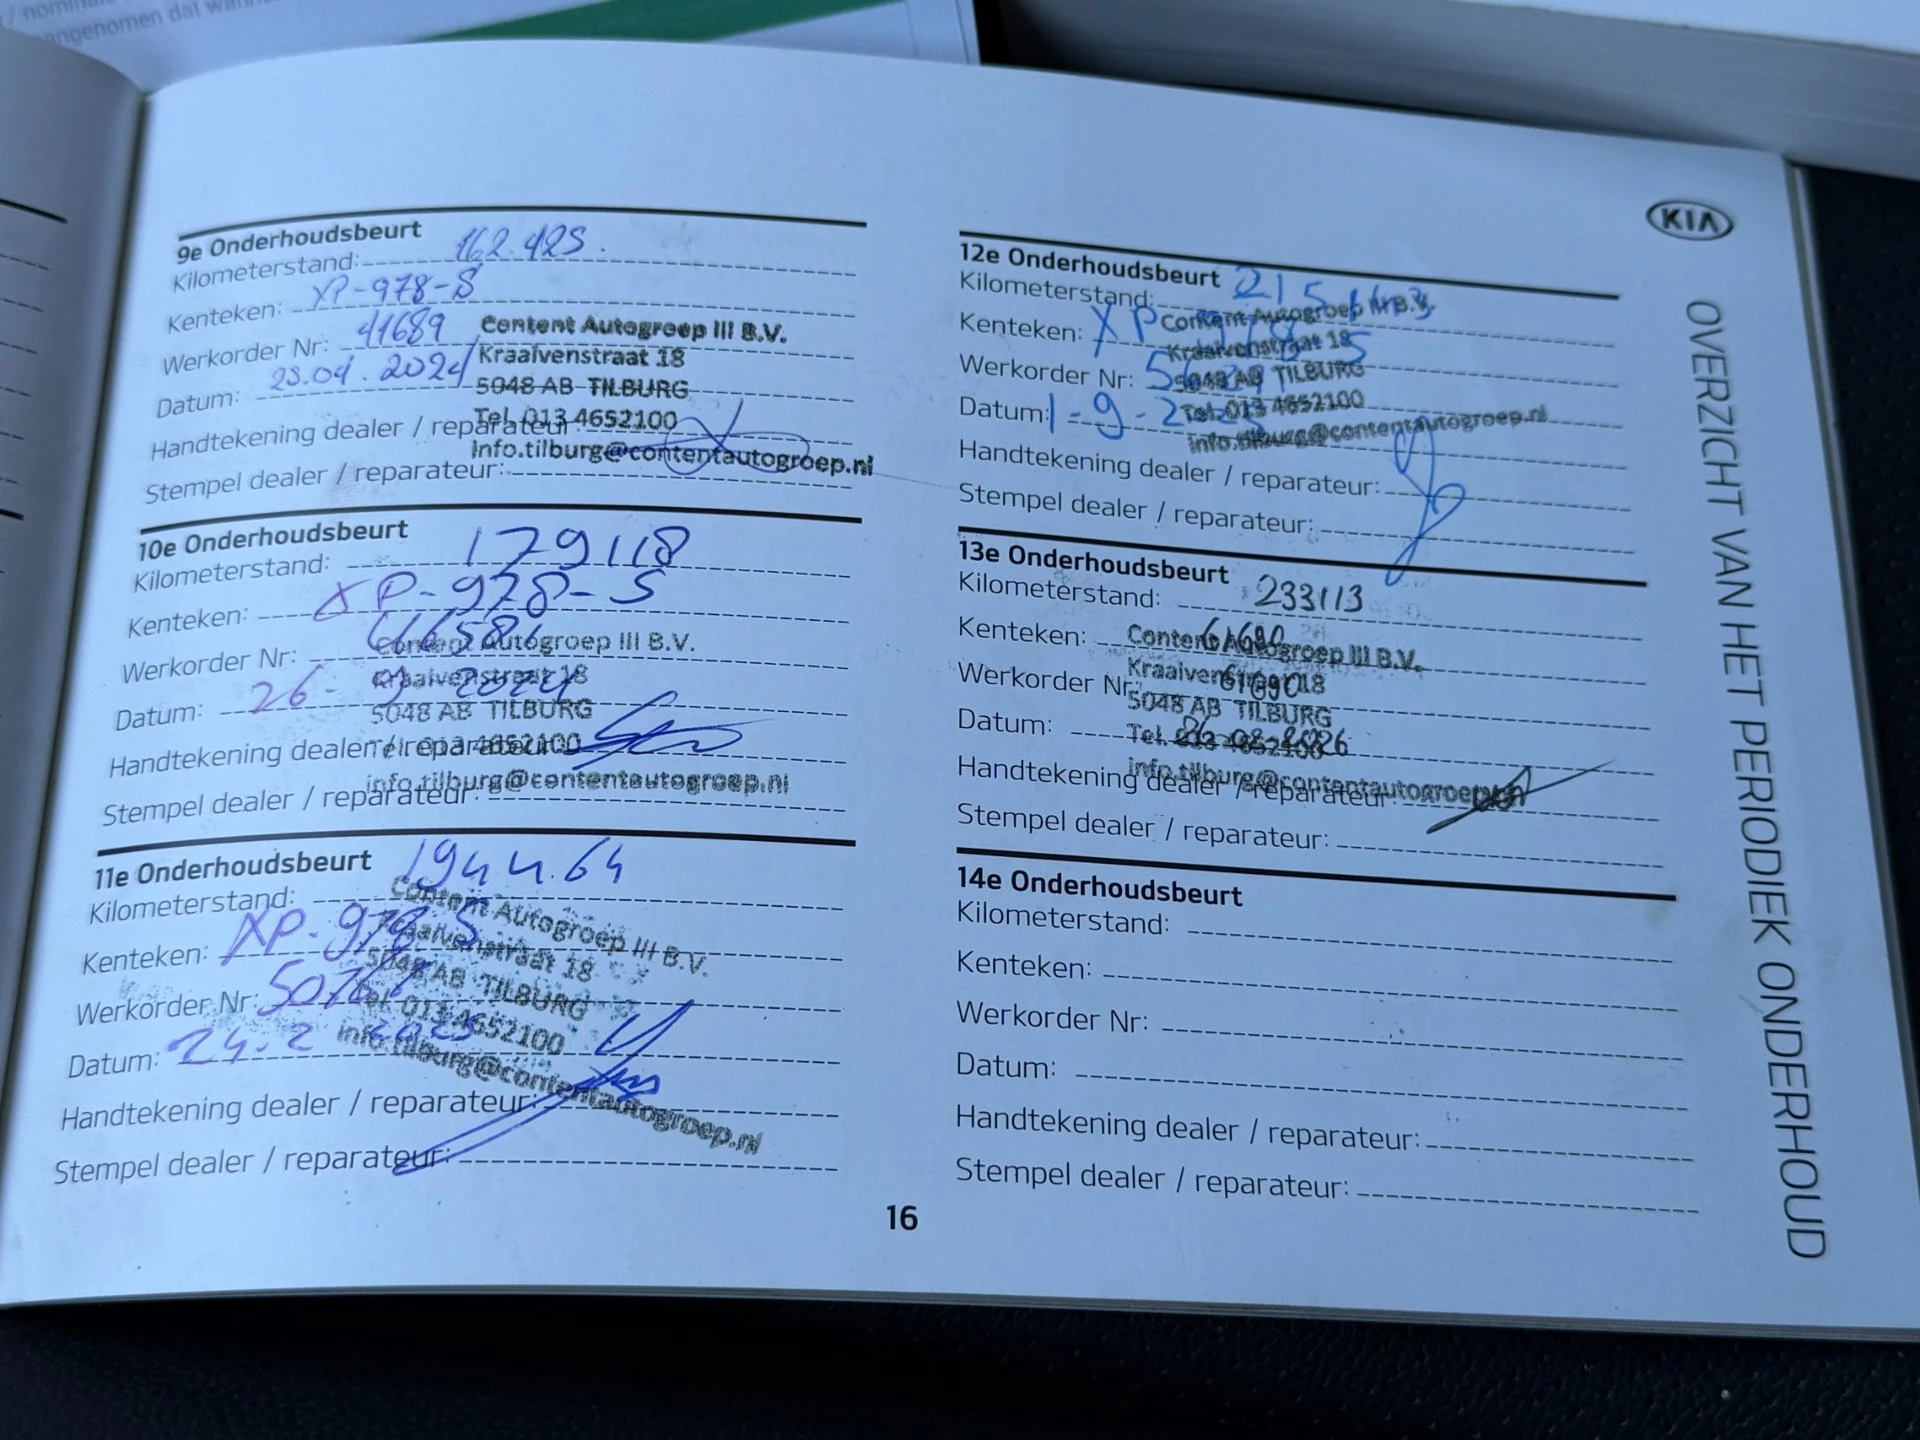 / nominale
angenomen dat wann
9e Onderhoudsbeurt
Kilometerstand: 162.425.
Kenteken: XP-978-S
Werkorder Nr: 41689
Datum: 2024
Content Autogroep III B.V.
Kraaivenstraat 18
5048 AB TILBURG
Tel. 013 4652100
info.tilburg@contentautogroep.nl
Handtekening dealer / reparateur:
Stempel dealer / reparateur:
10e Onderhoudsbeurt
Kilometerstand: 179118
Kenteken: XP-978-S
Werkorder Nr:
Datum: 26- 2024
Content Autogroep III B.V.
Kraaivenstraat 18
5048 AB TILBURG
Tel. 013 4652100
info.tilburg@contentautogroep.nl
Handtekening dealer / reparateur:
Stempel dealer / reparateur:
11e Onderhoudsbeurt
Kilometerstand: 194464
Kenteken: XP-978-S
Werkorder Nr:
Datum: 24-2 2025
Content Autogroep III B.V.
Kraaivenstraat 18
5048 AB TILBURG
Tel. 013 4652100
info.tilburg@contentautogroep.nl
Handtekening dealer / reparateur:
Stempel dealer / reparateur:
16
KIA
12e Onderhoudsbeurt
Kilometerstand:
Kenteken: XP
Werkorder Nr:
Datum: 1-9-2
Content Autogroep III B.V.
Kraaivenstraat 18
5048 AB TILBURG
Tel. 013 4652100
info.tilburg@contentautogroep.nl
Handtekening dealer / reparateur:
Stempel dealer / reparateur:
13e Onderhoudsbeurt
Kilometerstand: 233113
Kenteken:
Werkorder Nr: 61690
Datum:
Content Autogroep III B.V.
Kraaivenstraat 18
5048 AB TILBURG
Tel. 013 4652100
info.tilburg@contentautogroep.nl
Handtekening dealer / reparateur:
Stempel dealer / reparateur:
14e Onderhoudsbeurt
Kilometerstand:
Kenteken:
Werkorder Nr:
Datum:
Handtekening dealer / reparateur:
Stempel dealer / reparateur:
OVERZICHT VAN HET PERIODIEK ONDERHOUD